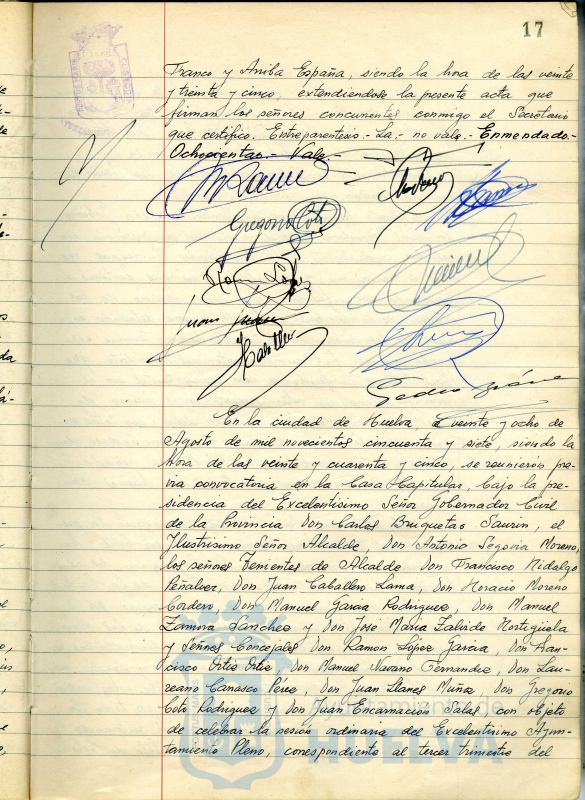 17
Franco y Arriba España, siendo la hora de las veinte
y treinta y cinco, extendiendose la presente acta que
firman los señores concurrentes conmigo el Secretario
que certifico. Entreparentesis.- La.- no vale.- Enmendado.-
Ochocientas.- Vale.-
Gregorio Coto
En la ciudad de Huelva, a veinte y ocho de
Agosto de mil novecientos cincuenta y siete, siendo la
hora de las veinte y cuarenta y cinco, se reunieron pre-
via convocatoria en la Casa Capitular, bajo la pre-
sidencia del Excelentisimo Señor Gobernador Civil
de la Provincia Don Carlos Bruquetas Saurin, el
Ilustrisimo Señor Alcalde, Don Antonio Segovia Moreno,
los señores Tenientes de Alcalde Don Francisco Hidalgo
Peñalver, Don Juan Caballero Lama, Don Horacio Moreno
Cordero, Don Manuel Garcia Rodriguez, Don Manuel
Zamora Sanchez y Don José Maria Zalvide Hortigüela
y Señores Concejales Don Ramon López Garcia, Don Fran-
cisco Ortiz Ortiz, Don Manuel Navarro Fernandez, Don Lau-
reano Carrasco Pérez, Don Juan Llanes Muñiz, Don Gregorio
Coto Rodriguez y Don Juan Encarnacion Salas con objeto
de celebrar la sesion ordinaria del Excelentisimo Ayun-
tamiento Pleno, correspondiente al tercer trimestre del